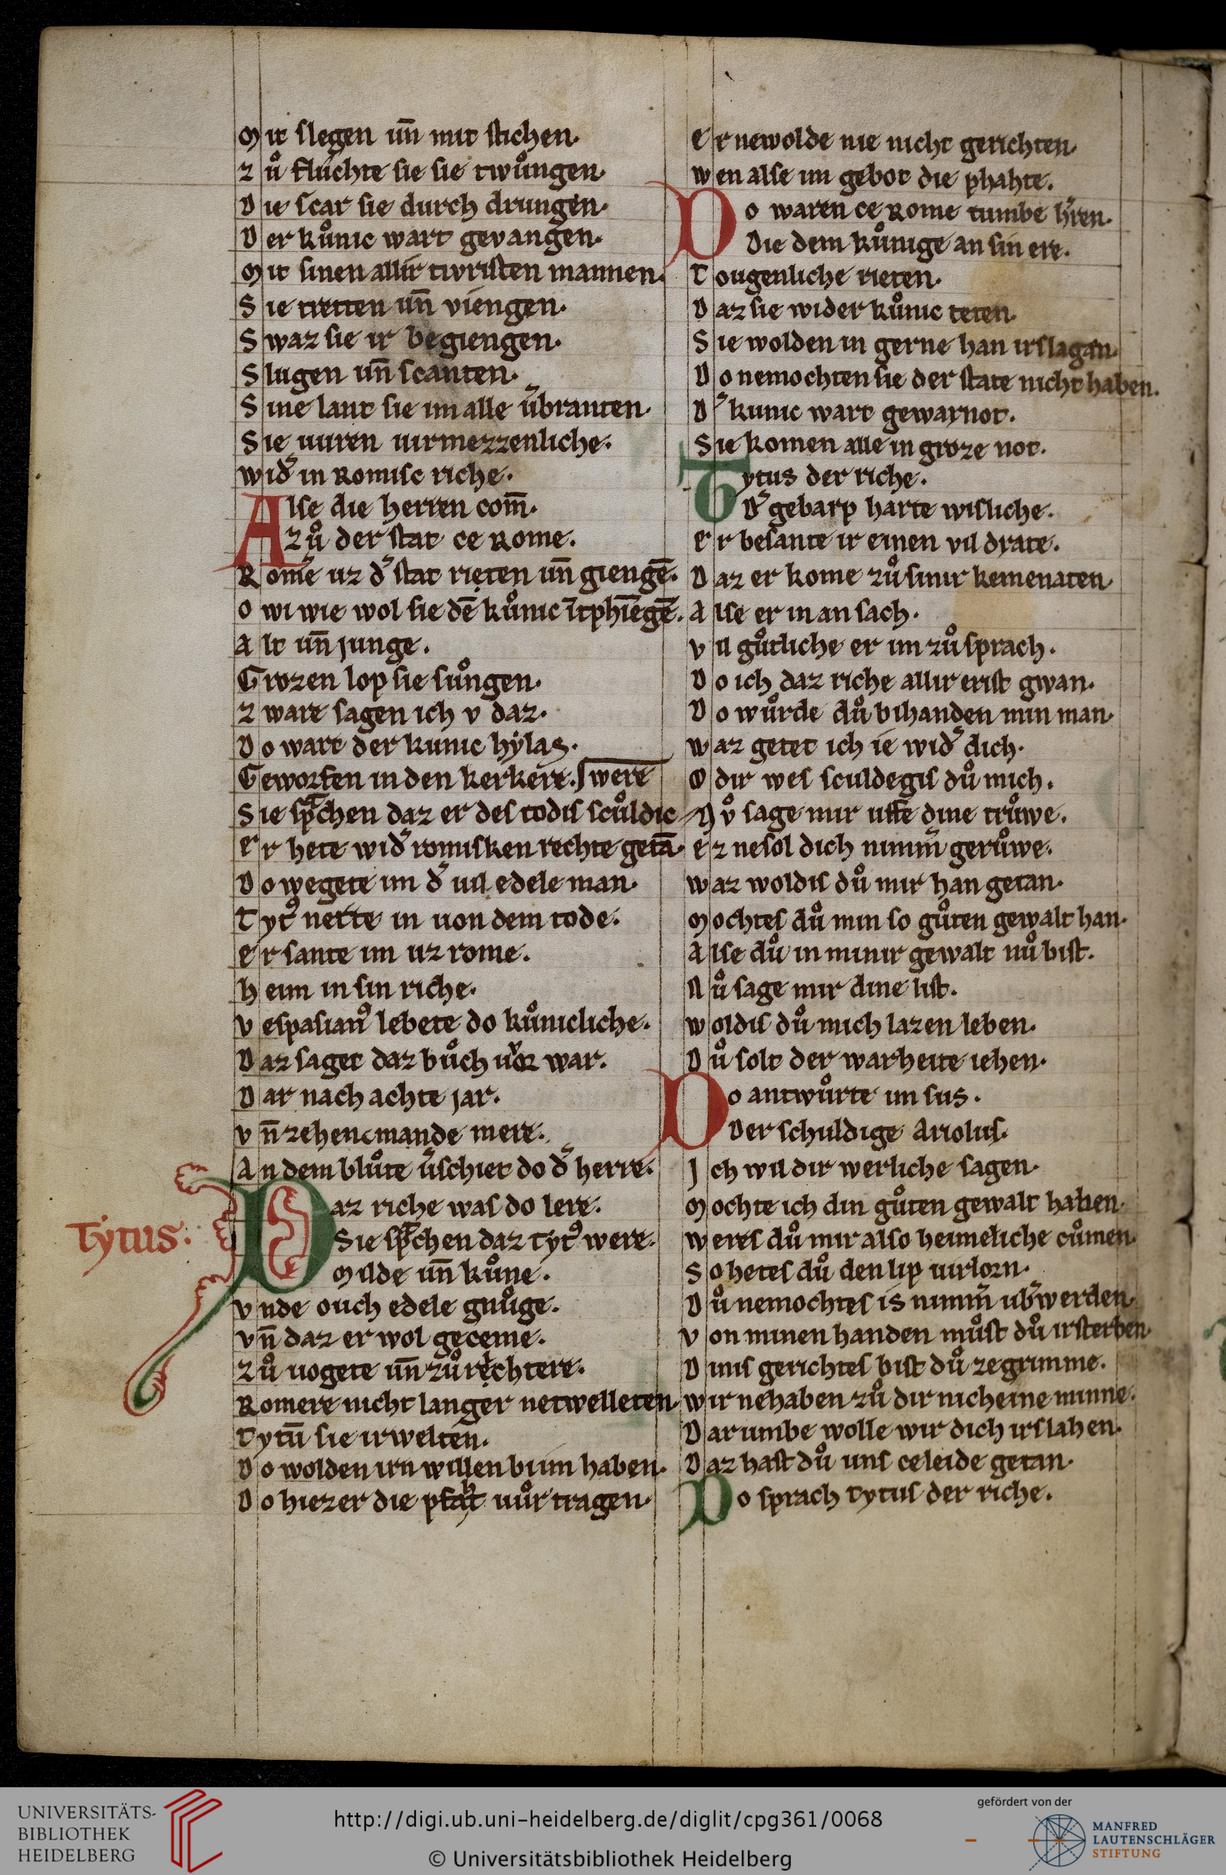 Mit slegen un̄ mit stichen.
Zů fluchte sie sie twůngen.
Die scar sie durch drungen.
Der kůnic wart gevangen.
Mit sinen allir tivristen mannen.
Sie tretten un̄ viengen.
Swaz sie ir begiengen.
Slugen un̄ scanten.
Sine lant sie im alle v̄branten.
Sie vuren virmezzenliche.
wid͛ in Romisc riche.
Alse die herren com̄.
Zů der stat ce Rome.
Rome͛ uz d͛ stat rieten un̄ giengē.
o wi wie wol sie dē kůnic ītphiēgē.
Alt un̄ junge.
Grozen lop sie sůngen.
Zware sagen ich v daz.
Do wart der kunic hẏlas.
Geworfen in den kerkere. were
Sie sp̄chen daz er des todis scůldic
er hete wid͛ romisken rechte getā.
Do wegete im d͛ uil edele man.
Tyt᷒ nette in uon dem tode.
er sante im uz rome.
heim in sin riche.
vespasian᷒ lebete do kůnicliche.
Daz saget daz bůch vůr war.
Dar nach achte jar.
vn̄ zehen mande mere.
An dem blůte v͛schiet do d͛ herre.
Tytus:
Daz riche was do lere.
Sie sp̄chen daz tyt᷒ were.
Milde un̄ kůne.
vnde ouch edele gnůge.
vn̄ daz er wol geceme.
Zů uogete un̄ zů rechtere.
Romere nicht langer netwelleten.
Tytū sie irwelten.
Do wolden irn willen bi im haben.
Do hiez er die pfaht uůr tragen.
er newolde nie nicht gerichten.
wen alse im gebot die phahte.
Do waren ce Rome tumbe h͛ren.
Die dem kůnige an sin ere.
Tougenliche rieten.
Daz sie wider kůnic teten.
Sie wolden in gerne han irslagan.
Do nemochten sie der state nicht haben.
D͛ kunic wart gewarnot.
Sie komen alle in groze not.
Tytus der riche.
D͛ gebarp harte wisliche.
er besante ir einen vil drate.
Daz er kome zů sinir kemenaten
Alse er in an sach.
vil gůtliche er im zů sprach.
Do ich daz riche allir erist gwan.
Do wůrde dů bihanden min man.
waz getet ich ie wid͛ dich.
O dir wes sculdegis dů mich.
Nů sage mir uffe dine trůwe.
ez nesol dich nimm͛ gerůwe.
waz woldis dů mir han getan.
Mochtes dů min so gůten gewalt han.
Alse dů in minir gewalt nů bist.
Nů sage mir dine list.
woldis dů mich lazen leben.
Dů solt der warheite iehen.
Do antwůrte im sus.
Der schuldige Ariolus.
Ich wil dir werliche sagen.
Mochte ich din gůten gewalt haben.
weres dů mir also heimeliche cůmen.
So hetes dů den lip uirlorn.
Dů nemochtes is nimm͛ ub͛werden.
von minen handen můst dů irsterben.
Dinis gerichtes bist dů ze grimme.
wir nehaben zů dir nicheine minne.
Dar umbe wolle wir dich irslahen.
Daz hast dů uns ce leide getan.
Do sprach Tytus der riche.
UNIVERSITÄTS-
BIBLIOTHEK
HEIDELBERG
http://digi.ub.uni-heidelberg.de/diglit/cpg361/0068
© Universitätsbibliothek Heidelberg
gefördert von der
MANFRED
LAUTENSCHLÄGER
STIFTUNG